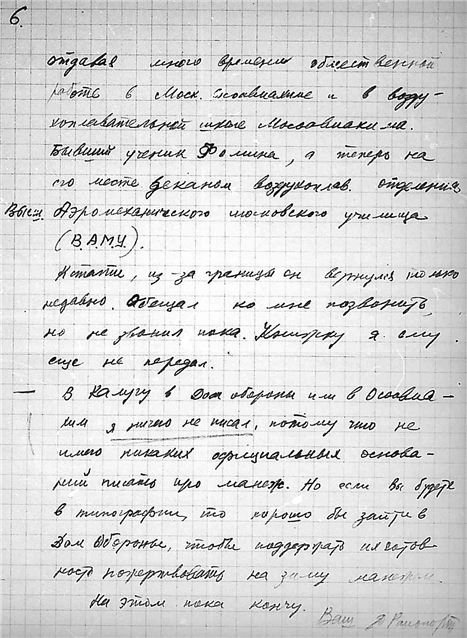 6.
отдавая много времени общественной
работе в Моск. Осоавиахиме и в возду-
хоплавательной школе Мособавиахима.
Бывший ученик Фомина, а теперь на
его месте деканом воздухоплав. отделения
Высш. Аэромеханического московского училища
(В.А.М.У.).
Кстати, из-за границы он вернулся только
недавно. Обещал ко мне позвонить,
но не звонил пока. Книжку я ему
еще не передал.
— В Калугу в Дом обороны или в Осоавиа-
хим я ничего не писал, потому что не
имею никаких официальных основа-
ний писать про манеж. Но если Вы будете
в типографии, то хорошо бы зайти в
Дом Обороны, чтобы поддержать их готов
ность пожертвовать на зиму манежем.
На этом пока кончу.
Ваш Я Рапопорт